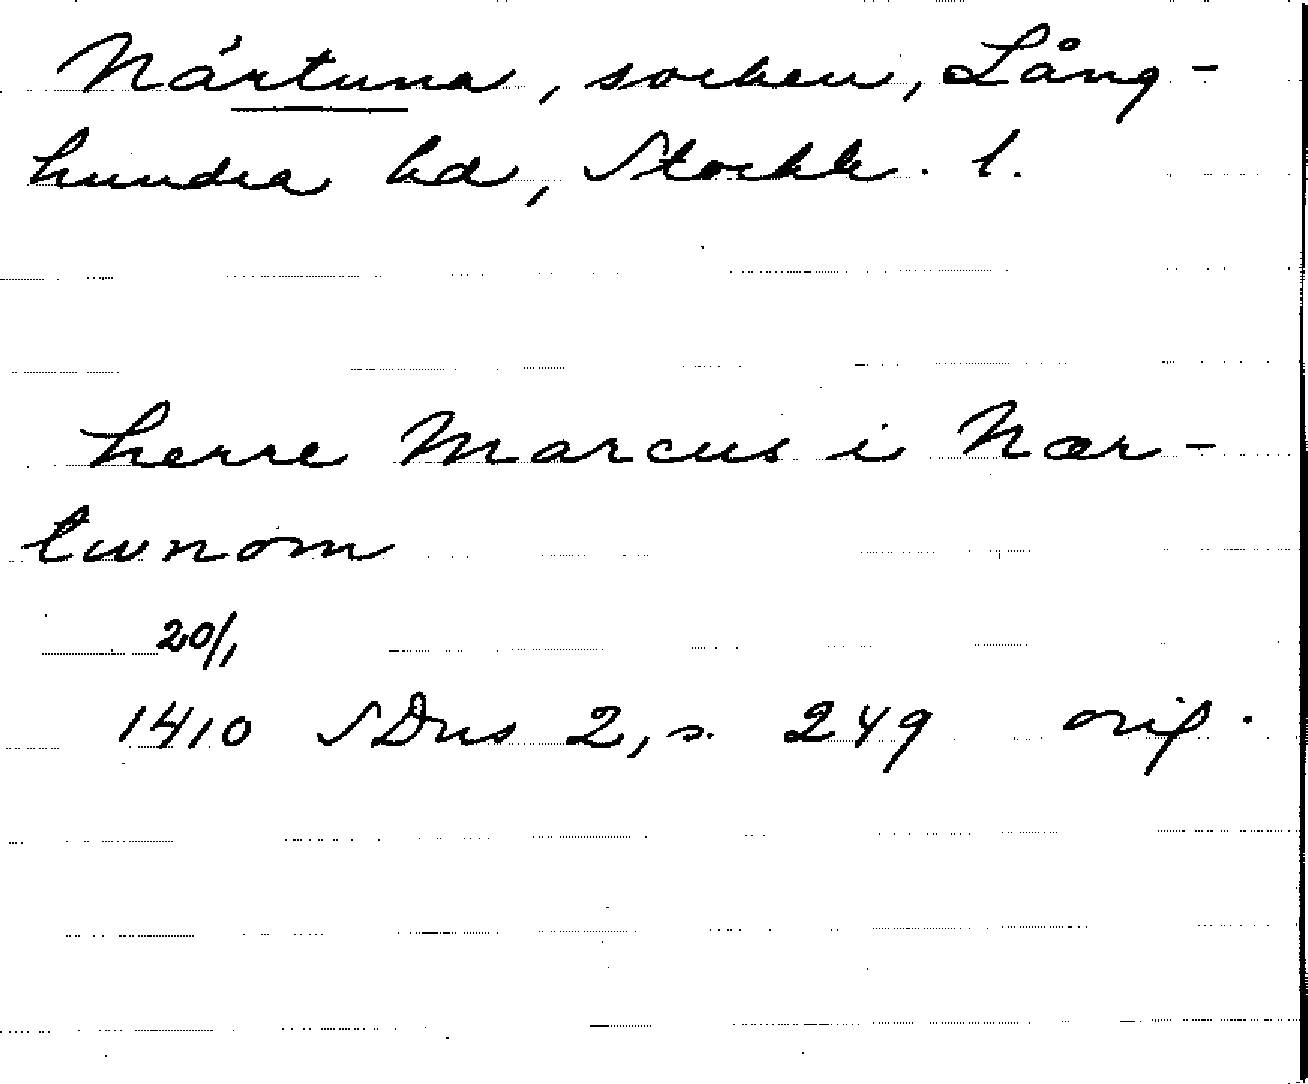 Närtuna, socken, Lång-
hundra hd, Stockh. l.
herre Marcus i Nær-
twnom
20/1
1410 SDns 2, s. 249 orig.